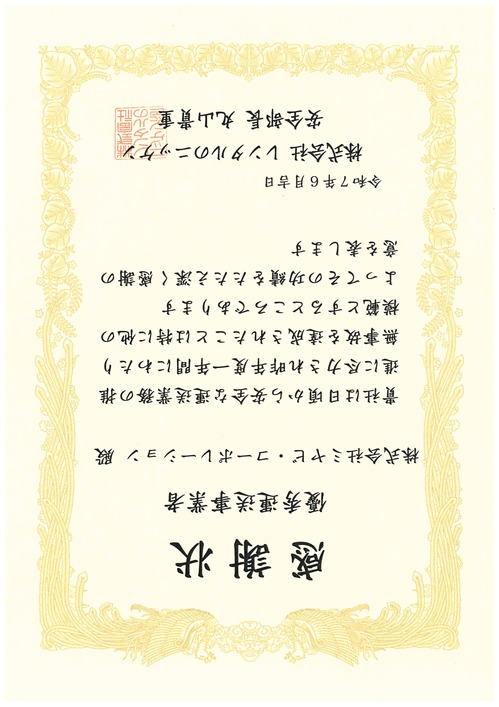 感謝状
優秀運送事業者
株式会社ミヤビ・コーポレーション 殿
貴社は日頃から安全な運送業務の推
進に尽力され昨年度一年間にわたり
無事故を達成されたことは特に他の
模範とするところであります
よってその功績をたたえ深く感謝の
意を表します
令和7年6月吉日
株式会社 レンタルのニッケン
安全部長 丸山貴重